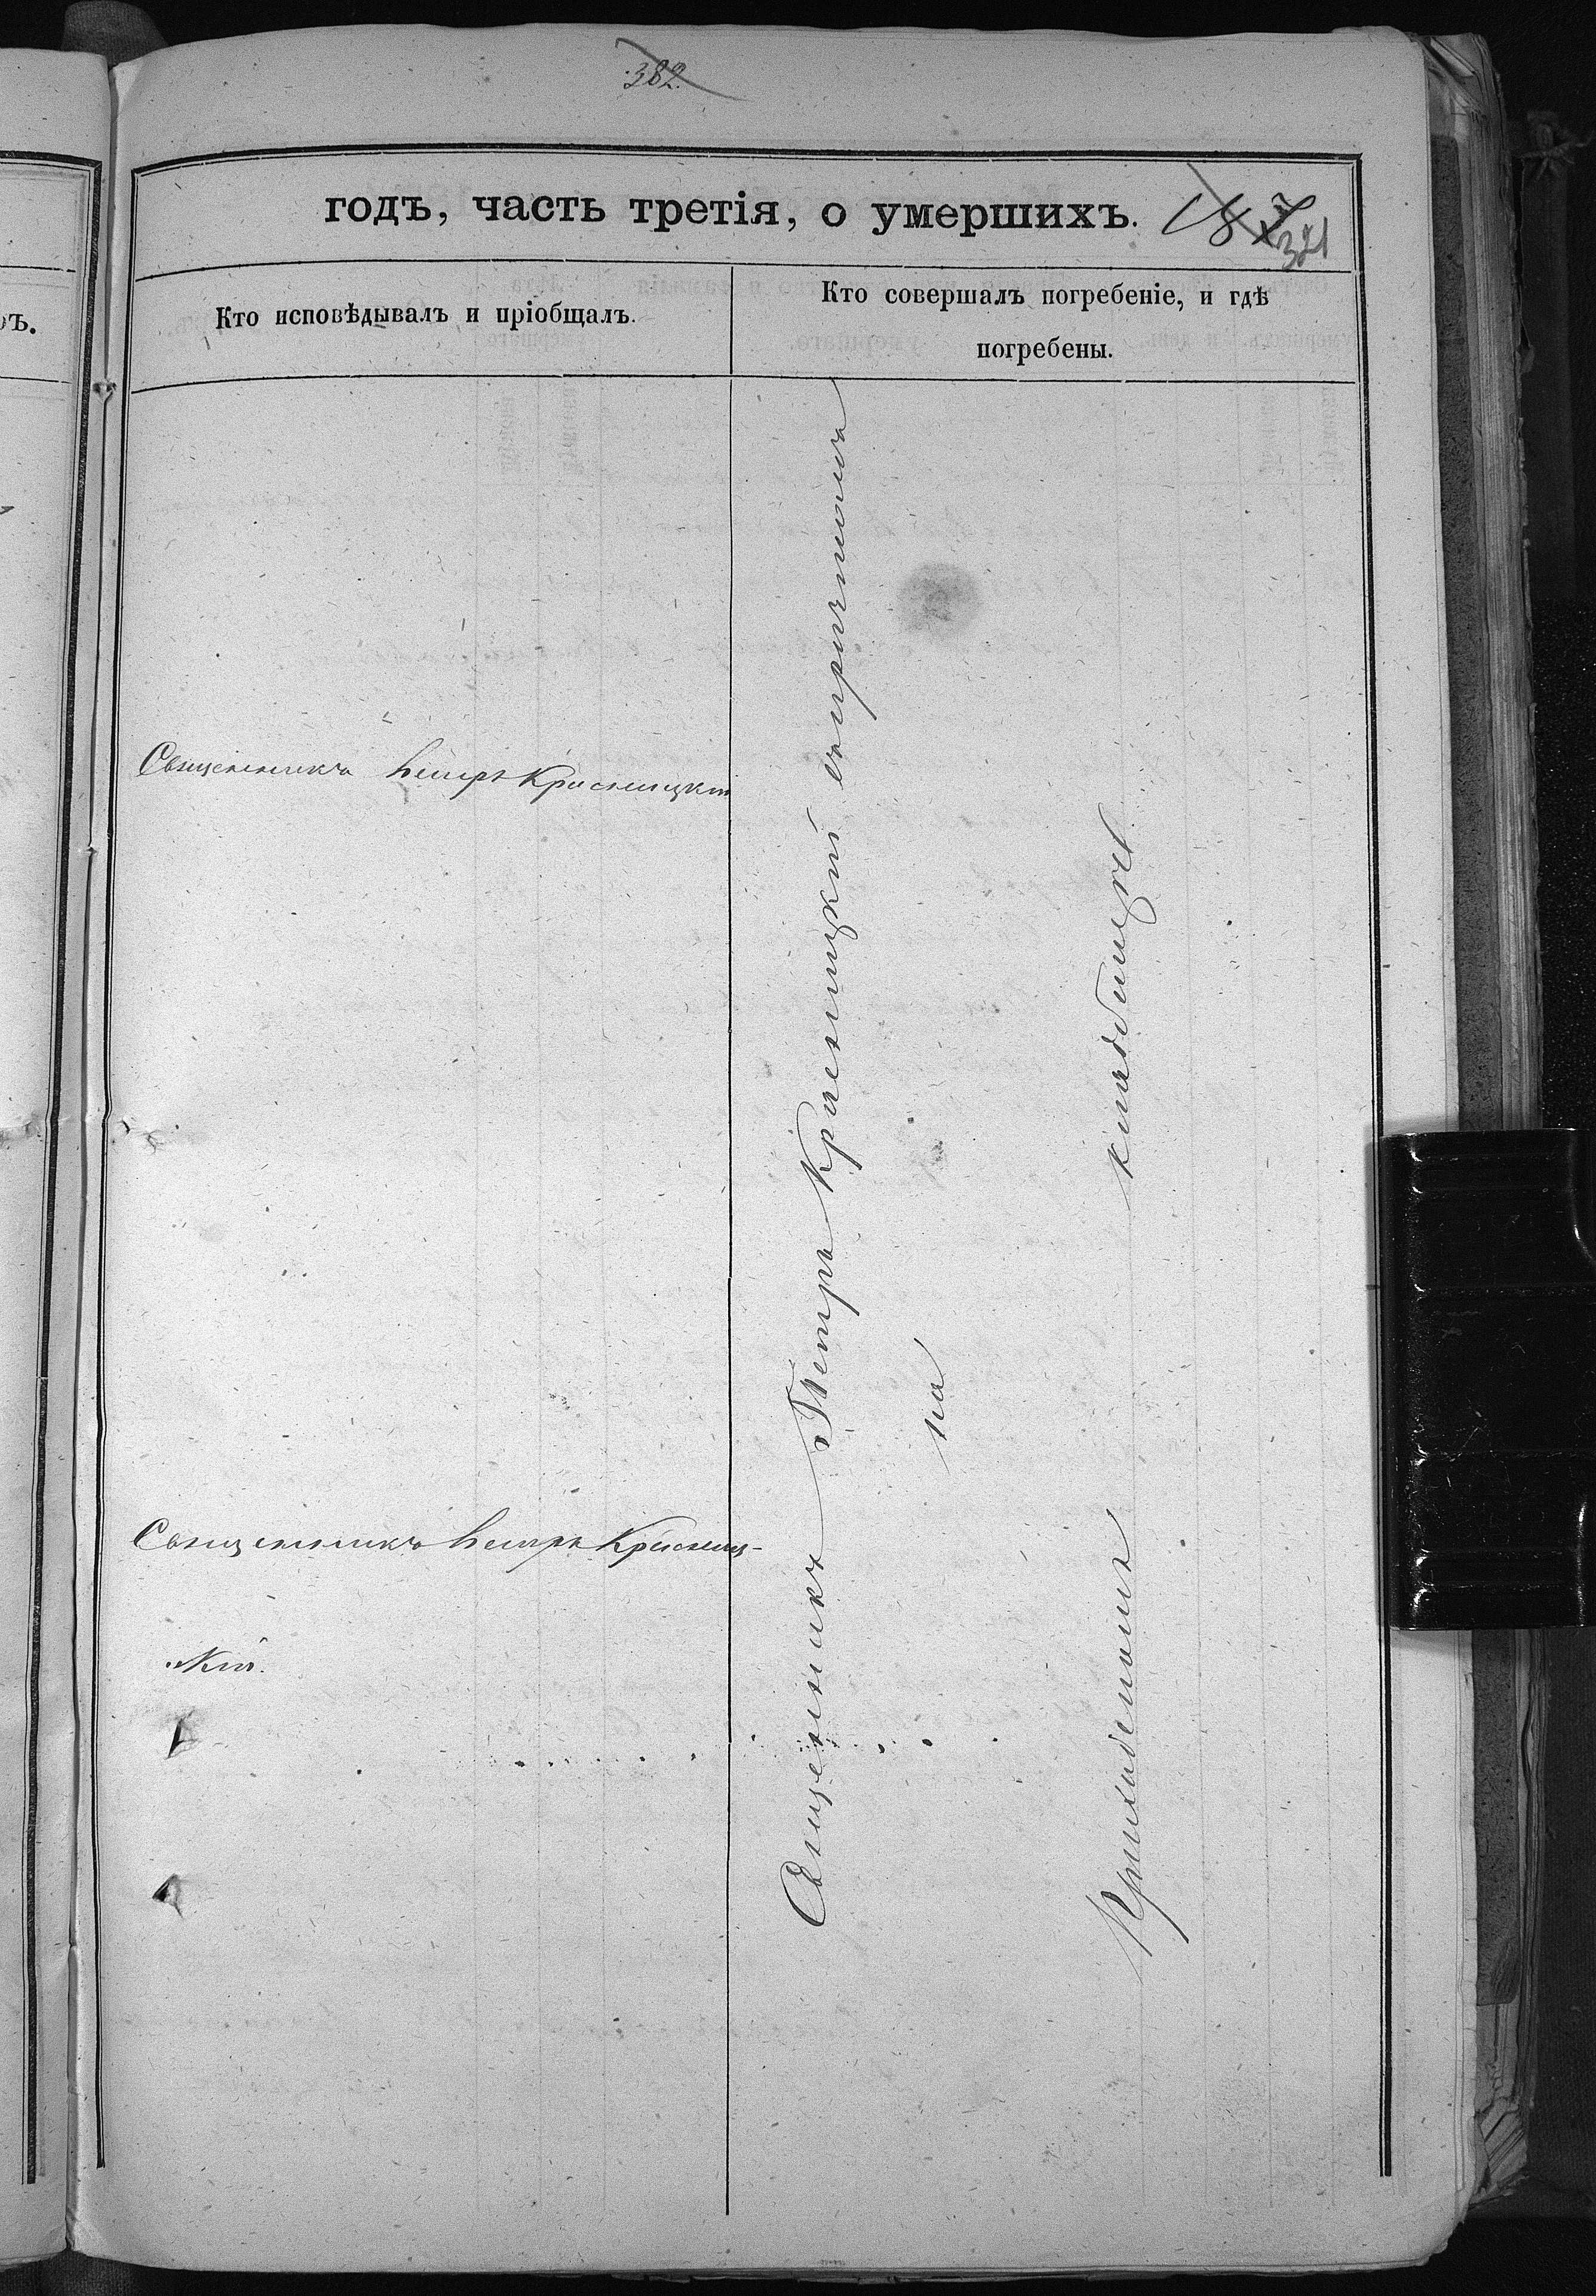 382.
годъ, часть третія, о умершихъ.
187
321
ръ.
Кто исповѣдывалъ и пріобщалъ.
Кто совершалъ погребеніе, и гдѣ
погребены.
Священникъ Петръ Красницкій
Священникъ Петръ Красниц-
кій.
Священникъ Петръ Красницкій съ причтомъ
на
Приходскомъ кладбищѣ